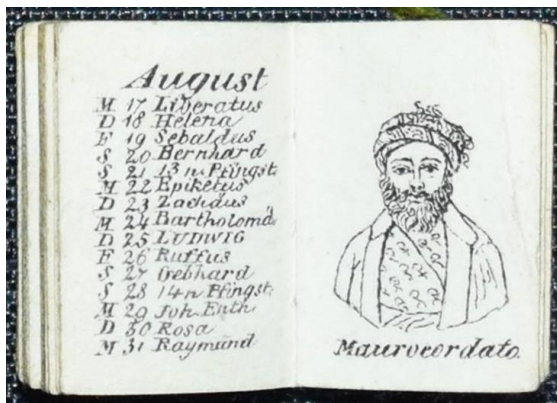 August
M 17 Liberatus
D 18 Helena
F 19 Sebaldus
S 20 Bernhard
S 21 13 n Pfingst.
M 22 Epiketus
D 23 Zachäus
M 24 Bartholomä
D 25 LUDWIG
F 26 Ruffus
S 27 Gebhard
S 28 14 n Pfingst.
M 29 Joh Enth.
D 30 Rosa
M 31 Raymund
Maurocordato.